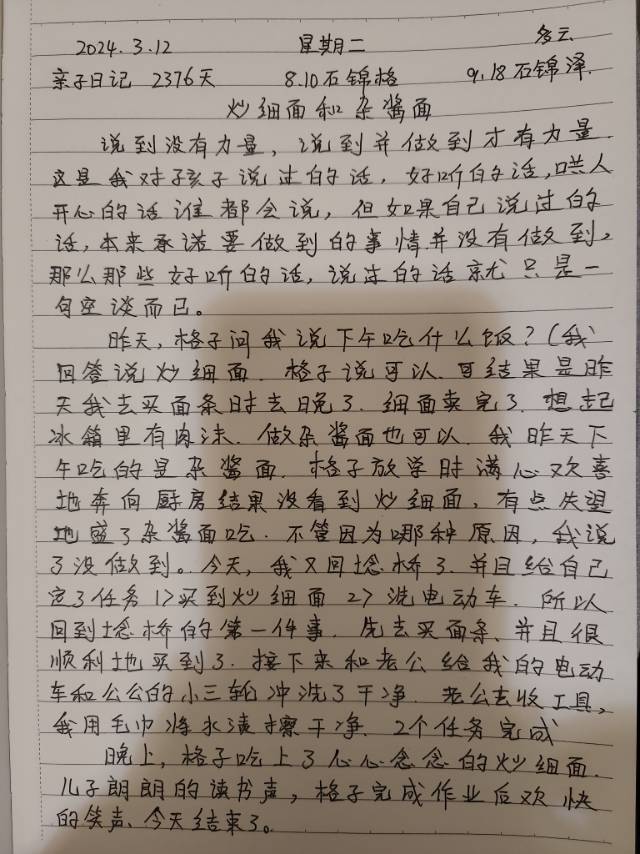 2024.3.12 星期二 多云
亲子日记 2376天 8.10石锦格 9.18石锦泽.
炒细面和杂酱面
说到没有力量,说到并做到才有力量.
这是我对孩子说过的话,好听的话,哄人
开心的话谁都会说,但如果自己说过的
话,本来承诺要做到的事情并没有做到,
那么那些好听的话,说过的话就只是一
句空谈而已。
昨天,格子问我说下午吃什么饭?(我
回答说炒细面.格子说可以.可结果是昨
天我去买面条时去晚了.细面卖完了.想起
冰箱里有肉沫.做杂酱面也可以.我昨天下
午吃的是杂酱面.格子放学时满心欢喜
地奔向厨房结果没看到炒细面,有点失望
地盛了杂酱面吃.不管因为哪种原因,我说
了没做到。今天,我又回埝桥了.并且给自己
定了任务1>买到炒细面 2>洗电动车.所以
回到埝桥的第一件事.先去买面条、并且很
顺利地买到了.接下来和老公给我的电动
车和公公的小三轮冲洗了干净.老公去收工具,
我用毛巾将水渍擦干净.2个任务完成
晚上,格子吃上了心心念念的炒细面.
儿子朗朗的读书声,格子完成作业后欢快
的笑声、今天结束了。